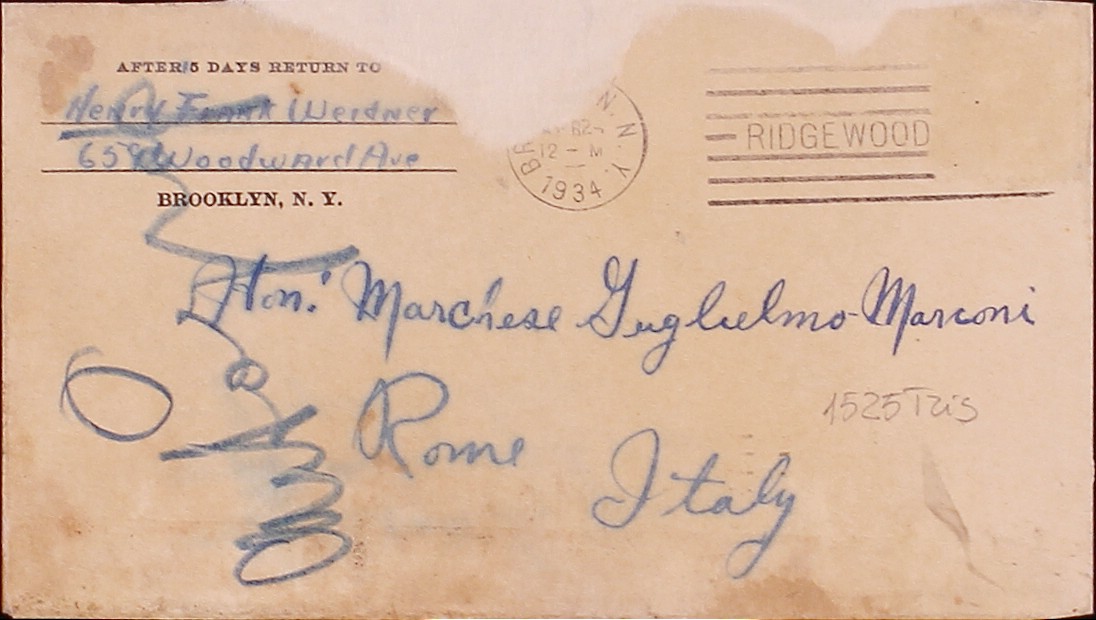 AFTER 5 DAYS RETURN TO
Henry Frank Weidner
Woodward Ave
BROOKLYN, N. Y.
N. N. Y.
12 - M
1934
RIDGEWOOD
Hon. Marchese Guglielmo Marconi
Rome
Italy